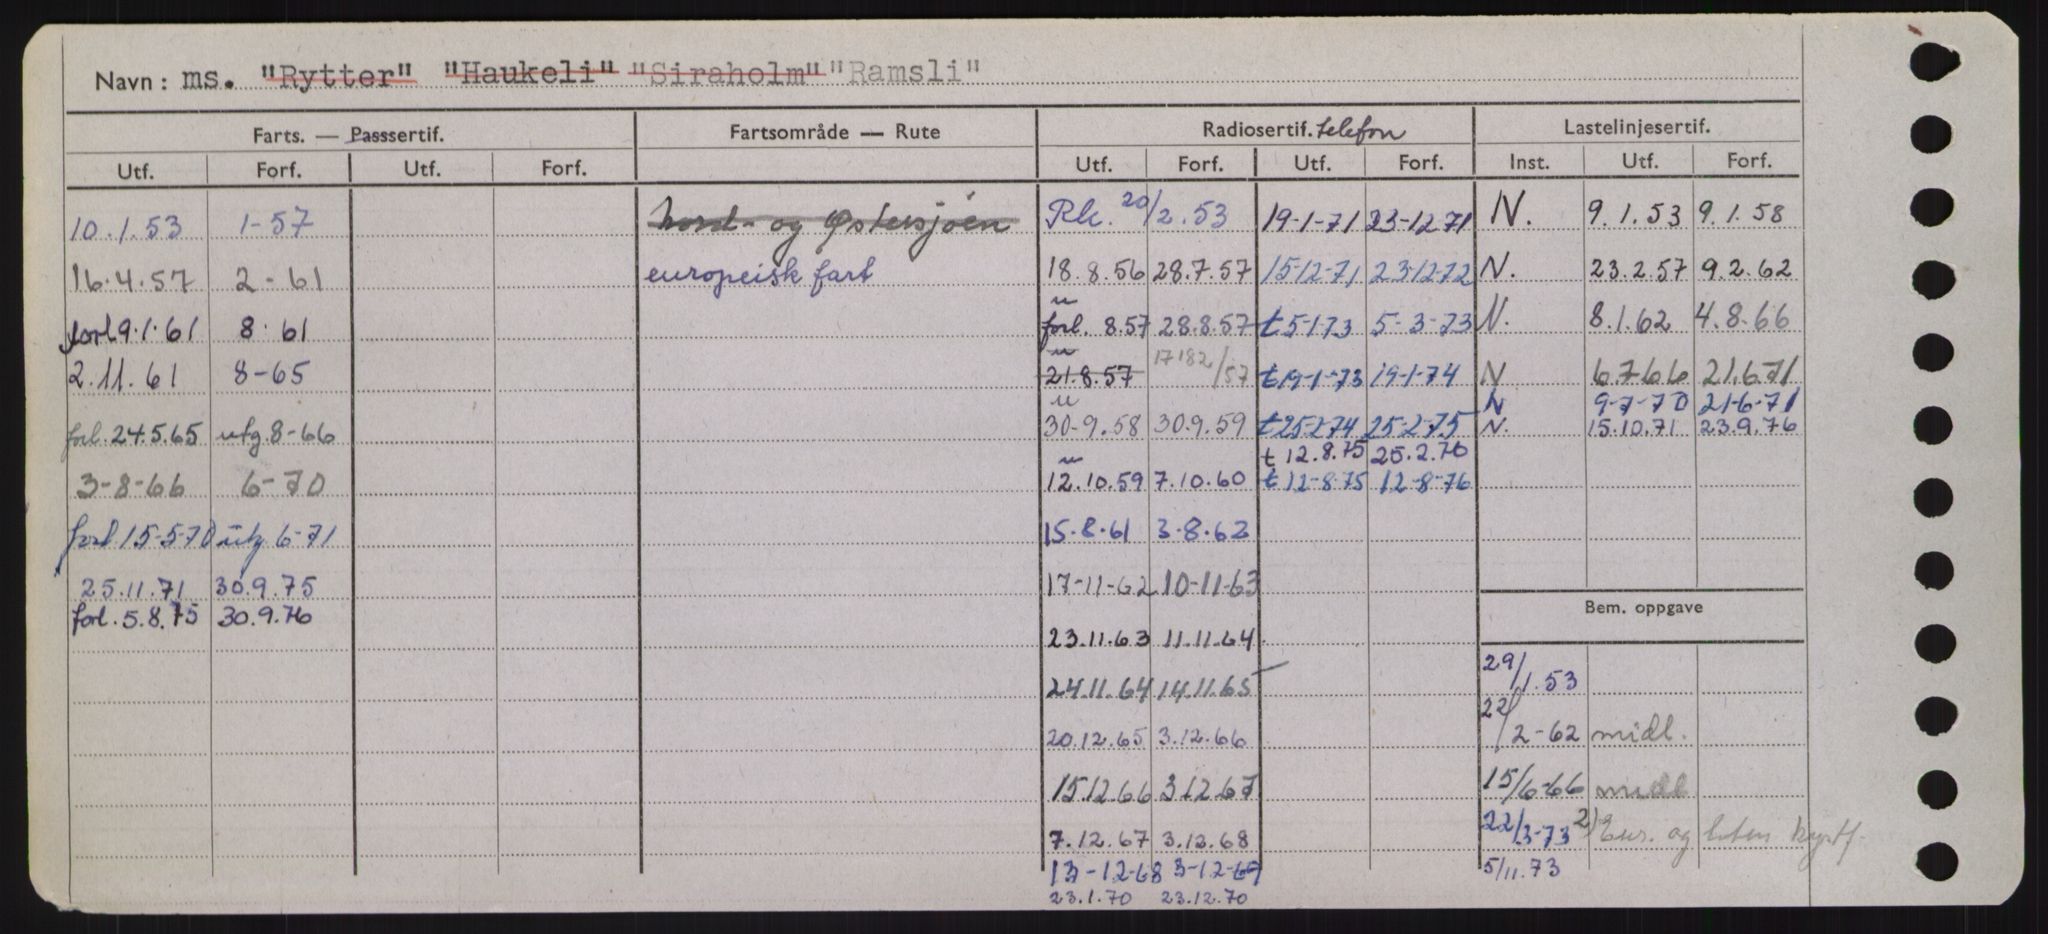 Navn: ms. "Rytter" "Haukeli" "Siraholm" "Ramsli"
Farts. — Passsertif. Fartsområde — Rute Radiosertif. telefon Lastelinjesertif.
Utf. Forf. Utf. Forf. Utf. Forf. Utf. Forf. Inst. Utf. Forf.
10.1.53 1-57 Nord- og Østersjøen Rk. 20/2.53 19-1-71 23-12.71 N. 9.1.53 9.1.58
16.4.57 2-61 europeisk fart 18.8.56 28.7.57 15-12-71 23-12-72 N. 23.2.57 9.2.62
forl 9.1.61 8.61 u forl. 8.57 28.8.57 t 5-1-73 5-3-73 N. 8.1.62 4.8.66
2.11.61 8-65 u 21.8.57 17182/57 t 19-1-73 19-1-74 N 6.7-66 21.6.71
N 9-7-70 21-6-71
forl. 24.5.65 utg. 8-66 u 30-9.58 30.9.59 t 25-2-74 25-2-75 N. 15.10.71 23.9.76
t 12.8.75 25.2.76
3-8-66 6-70 u 12.10.59 7.10.60 t 12-8-75 12-8-76
forl 15-5-70 utg 6-71 15.8.61 3.8.62
25.11.71 30.9.75 17-11-62 10-11-63
forl. 5.8.75 30.9.76
Bem. oppgave
23.11.63 11.11.64
29/1.53
24.11.64 14.11.65
20.12.65 3.12.66 22/2-62 midl.
15.12.66 3.12.67 15/6-66 midl
7.12.67 3.12.68 22/3-73 2) Eur. og liten kystf.
13-12-68 3-12-69 5/11.73
23.1.70 23.12.70